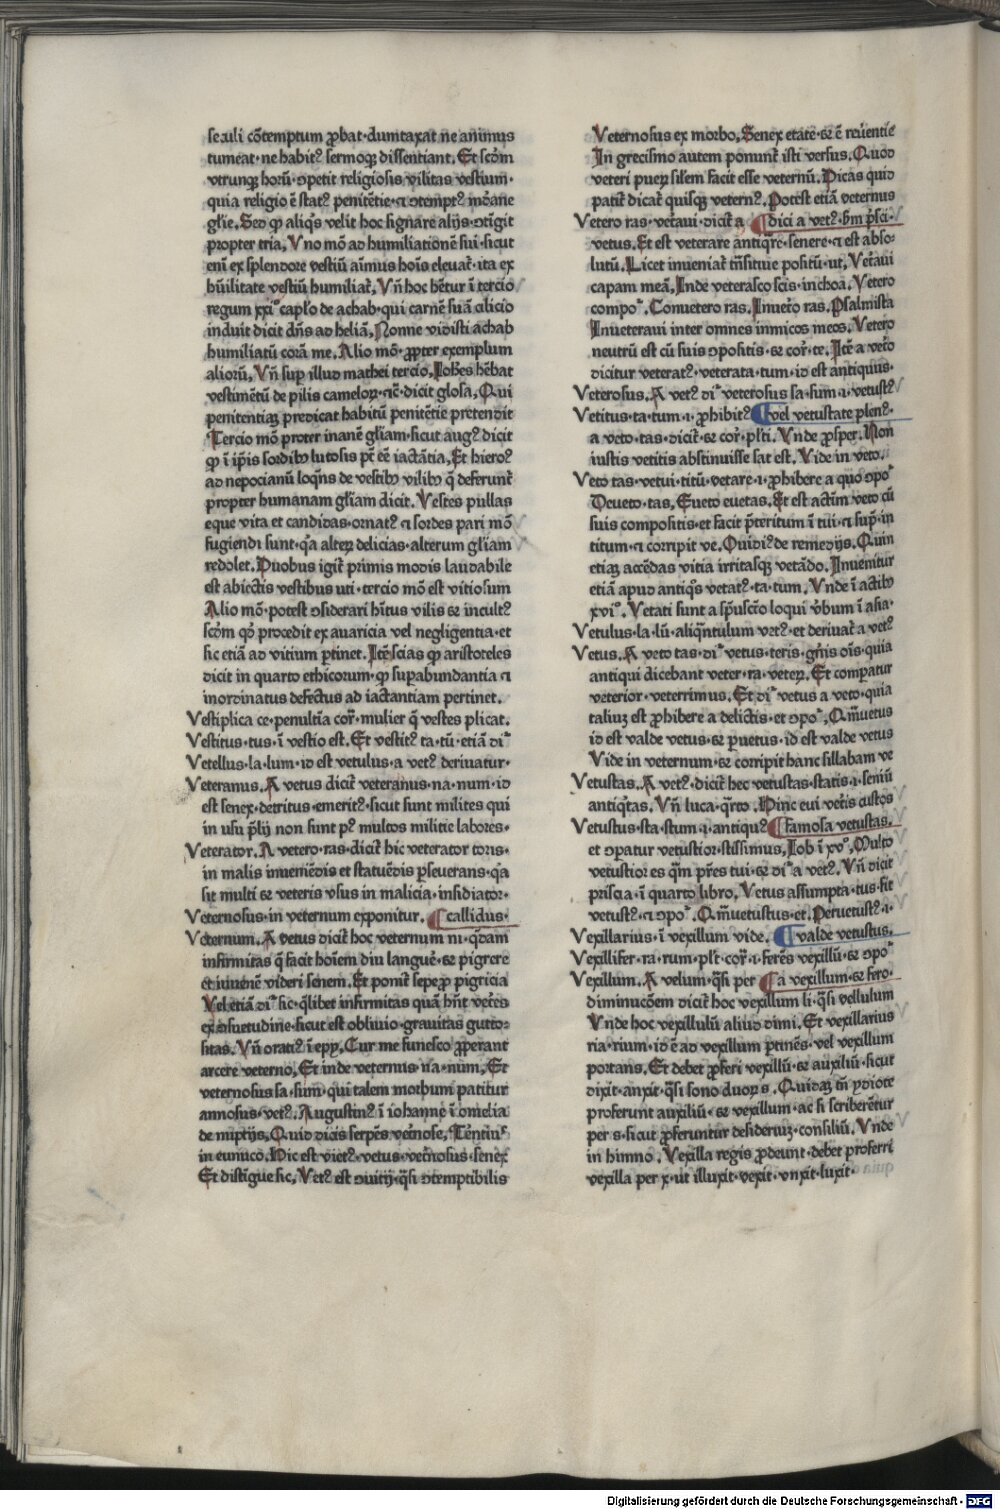 seculi cōtemptum ꝓbat·dumtaxat ne animus
tumeat·ne habitꝰ sermoqꝫ dissentiant. Et scđm
vtrunqꝫ horū·ↄpetit religiosis vilitas vestium·
quia religio ē statꝰ penitētie·⁊ ↄtemptꝰ mōane
glīe. Sed ꝙ aliqͥs velit hoc signare alijs·ↄtīgit
propter tria. Vno mō ad humiliationē sui·sicut
enī ex splendore vestiū aīmus hoīs eleuat᷑·ita ex
hūilitate vestiū humiliat᷑. Vn̄ hoc hētur ī tercio
regum xxiº capl̄o de achab·qui carnē suā cilicio
induit dicit dn̄s ad heliā. Nonne vidisti achab
humiliatū corā me. Alio mō·ꝓpter exemplum
aliorū. Vn̄ suꝑ illud mathei tercio. Ioh̄es hēbat
vestimētū de pilis cameloꝝ·⁊cē·dicit glosa. Qui
penitentiaꝫ predicat habitū penitētie pretendit
Tercio mō proter inanē gl̄iam·sicut augꝰ dicit
ꝙ ī ip̄is sordibꝰ lutosis pt̄ eē iactātia. Et hieroꝰ
ad nepocianū loqn̄s de vestibꝰ vilibꝰ q̄ deferunt᷑
propter humanam gl̄iam dicit. Vestes pullas
eque vita et candidas·ornatꝰ ⁊ sordes pari mō
fugiendi sunt·qͣa alteꝝ delicias·alterum gl̄iam
redolet. Duobus igit᷑ primis modis laudabile
est abiectis vestibus uti·tercio mō est vitiosum
Alio mō·potest ↄsiderari hītus vilis ⁊ incultꝰ
scđm qđ procedit ex auaricia vel negligentia·et
sic etiā ad vitium ꝑtinet. Itē scias ꝙ aristoteles
dicit in quarto ethicorum·ꝙ suꝑabundantia ⁊
inordinatus defectus ad iactantiam pertinet.
Vestiplica ce·penultīa cor̄·mulier q̄ vestes plicat.
Vestitus·tus·ī vestio est. Et vestitꝰ ta·tū·etiā diͬ
Vetellus·la·lum·id est vetulus·a vetꝰ deriuatur·
Veteranus. A vetus dicit᷑ veteranus·na·num·id
est senex·detritus·emeritꝰ·sicut sunt milites qui
in usu p̄lij non sunt pꝰ multos militie labores·
Veterator. A vetero·ras·dicit᷑ hic veterator toris·
in malis inueniēdis et statuēdis ꝑseuerans·qͣa
sit multi ⁊ veteris vsus in malicia·insidiator·
Veternosus·in veternum exponitur. ¶ callidus·
Veternum. A vetus dicit᷑ hoc veternum ni·qͣdam
infirmitas q̄ facit hoīem diu languē·⁊ pigrere
et iuuenē videri senem. Et ponit᷑ sepe ꝓ pigricia
Vel etiā diͬ sic·qͣlibet infirmitas quā hn̄t vet᷑es
ex ↄsuetudine·sicut est obliuio·grauitas gutto-
sitas. Vn̄ oratiꝰ ī epy. Cur me funesco ꝓperant
arcere veterno. Et inde veternus·na·num. Et
veternosus sa·sum·qui talem morbum patitur
annosus·vetꝰ. Augustinꝰ ī iohanne ī omelia
de nuptijs. Quid dicis serpēs vet᷑nose. Terētiuˢ
in eunuco. Hic est vietꝰ·vetus·vet᷑nosus·senex
Et distīgue sic. Vetꝰ est diuitij·qͣsi ↄtemptibilis
Veternosus ex morbo. Senex etate·⁊ ē reu̓entie
In grecismo autem ponunt᷑ isti versus. Quod
veteri pueꝝ silem facit esse veternū. Dicas quid
patit᷑ dicat᷑ quisqꝫ veternꝰ. Potest etiā veternus
Vetero ras·vet᷑aui·dicit᷑ a ¶ dici a vetꝰ·ẜm p̄sci·
vetus. Et est veterare antiqͣre·senere·⁊ est abso-
lutū. Licet inueniat᷑ tn̄sitiue positū·ut. Vet᷑aui
capam meā. Inde veterasco scis·inchoā. Vetero
compoͬ. Conuetero ras. Inuet᷑o ras. Psalmista
Inueteraui inter omnes inmicos meos. Vetero
neutrū est cū suis ↄpositis·⁊ cor̄·te. Itē a vet᷑o
dicitur veteratꝰ·veterata·tum·id est antiquus·
Veterosus. A vetꝰ diͬ veterosus sa·sum·i·vetustꝰ
Vetitus·ta·tum·i·ꝓhibitꝰ ¶ vel vetustate plenꝰ·
a veto·tas·dicit᷑·⁊ cor̄·pl̄ti. Vnde ꝓsper. Non
iustis vetitis abstinuisse sat est. Vide in veto.
Veto tas·vetui·titū·vetare·i·ꝓhibere·a quo ↄpoͬ
Deueto·tas. Eueto euetas. Et est actīm veto cū
suis compositis·et facit p̄teritum ī tui·⁊ suꝑ·in
titum·⁊ corripit ve. Ouidiꝰ de remedijs. Quin
etiaꝫ accēdas vitia irritasqꝫ vetādo. Inuenitur
etiā apud antiqͦs vetatꝰ·ta·tum. Vnde ī actibꝰ
xviº. Vetati sunt a sp̄uscō loqui v̓bum ī asia·
Vetulus·la·lū·aliqͣntulum vetꝰ·et deriuat᷑ a vetꝰ
Vetus. A veto tas·diͬ vetus·teris·gn̄is oīs·quia
antiqui dicebant veter·ra·veteꝝ. Et comꝑatur
veterior·veterrimus. Et diͬ vetus a veto·quia
taliuꝫ est ꝓhibere a delictis·et ↄpoͬ. Qͣmuetus
id est valde vetus·⁊ p̄uetus·id est valde vetus
Vide in veternum·⁊ corripit hanc sillabam ve
Vetustas. A vetꝰ·dicit᷑ hec vetustas·statis·i·seniū
antiqͥtas. Vn̄ luca·qͣrto. Hinc eui vet᷑is custos
Vetustus·sta·stum·i·antiquꝰ ¶ famosa vetustas.
et ↄpatur vetustior·stissimus. Iob ī xvº. Multo
vetustiores qͣm p̄res tui·⁊ diͬ a vetꝰ. Vn̄ dicit
priscia·ī quarto libro. Vetus assumpta·tus·fit
vetustꝰ·⁊ ↄpoͬ. Qͣmuetustus·et. Peruetustꝰ·i·
Vexillarius·ī vexillum vide. ¶ valde vetustus.
Vexillifer·ra·rum·pl̄t·cor̄·i·ferēs vexillū·⁊ ↄpoͬ
Vexillum. A velum·qͣsi per ¶ a vexillum·⁊ fero·
diminucōem dicit᷑ hoc vexillum li·qͣsi vellulum
Vnde hoc vexillulū aliud dimi. Et vexillarius
ria·rium·id ē ad vexillum ꝑtinēs·vel vexillum
portans. Et debet ꝓferri vexillū·⁊ auxiliū·sicut
dixit·anxit·qͣsi sono duoꝝ s. Quidaꝫ tn̄ ydiote
proferunt auxiliū·⁊ vexillum·ac si scriberētur
per s·sicut ꝓferuntur desideriuꝫ·consiliū. Vnde
in himno. Vexilla regis ꝓdeunt·debet proferri
vexilla per x·ut illuxit·vexit·vnxit·luxit·
Digitalisierung gefördert durch die Deutsche Forschungsgemeinschaft - DFG